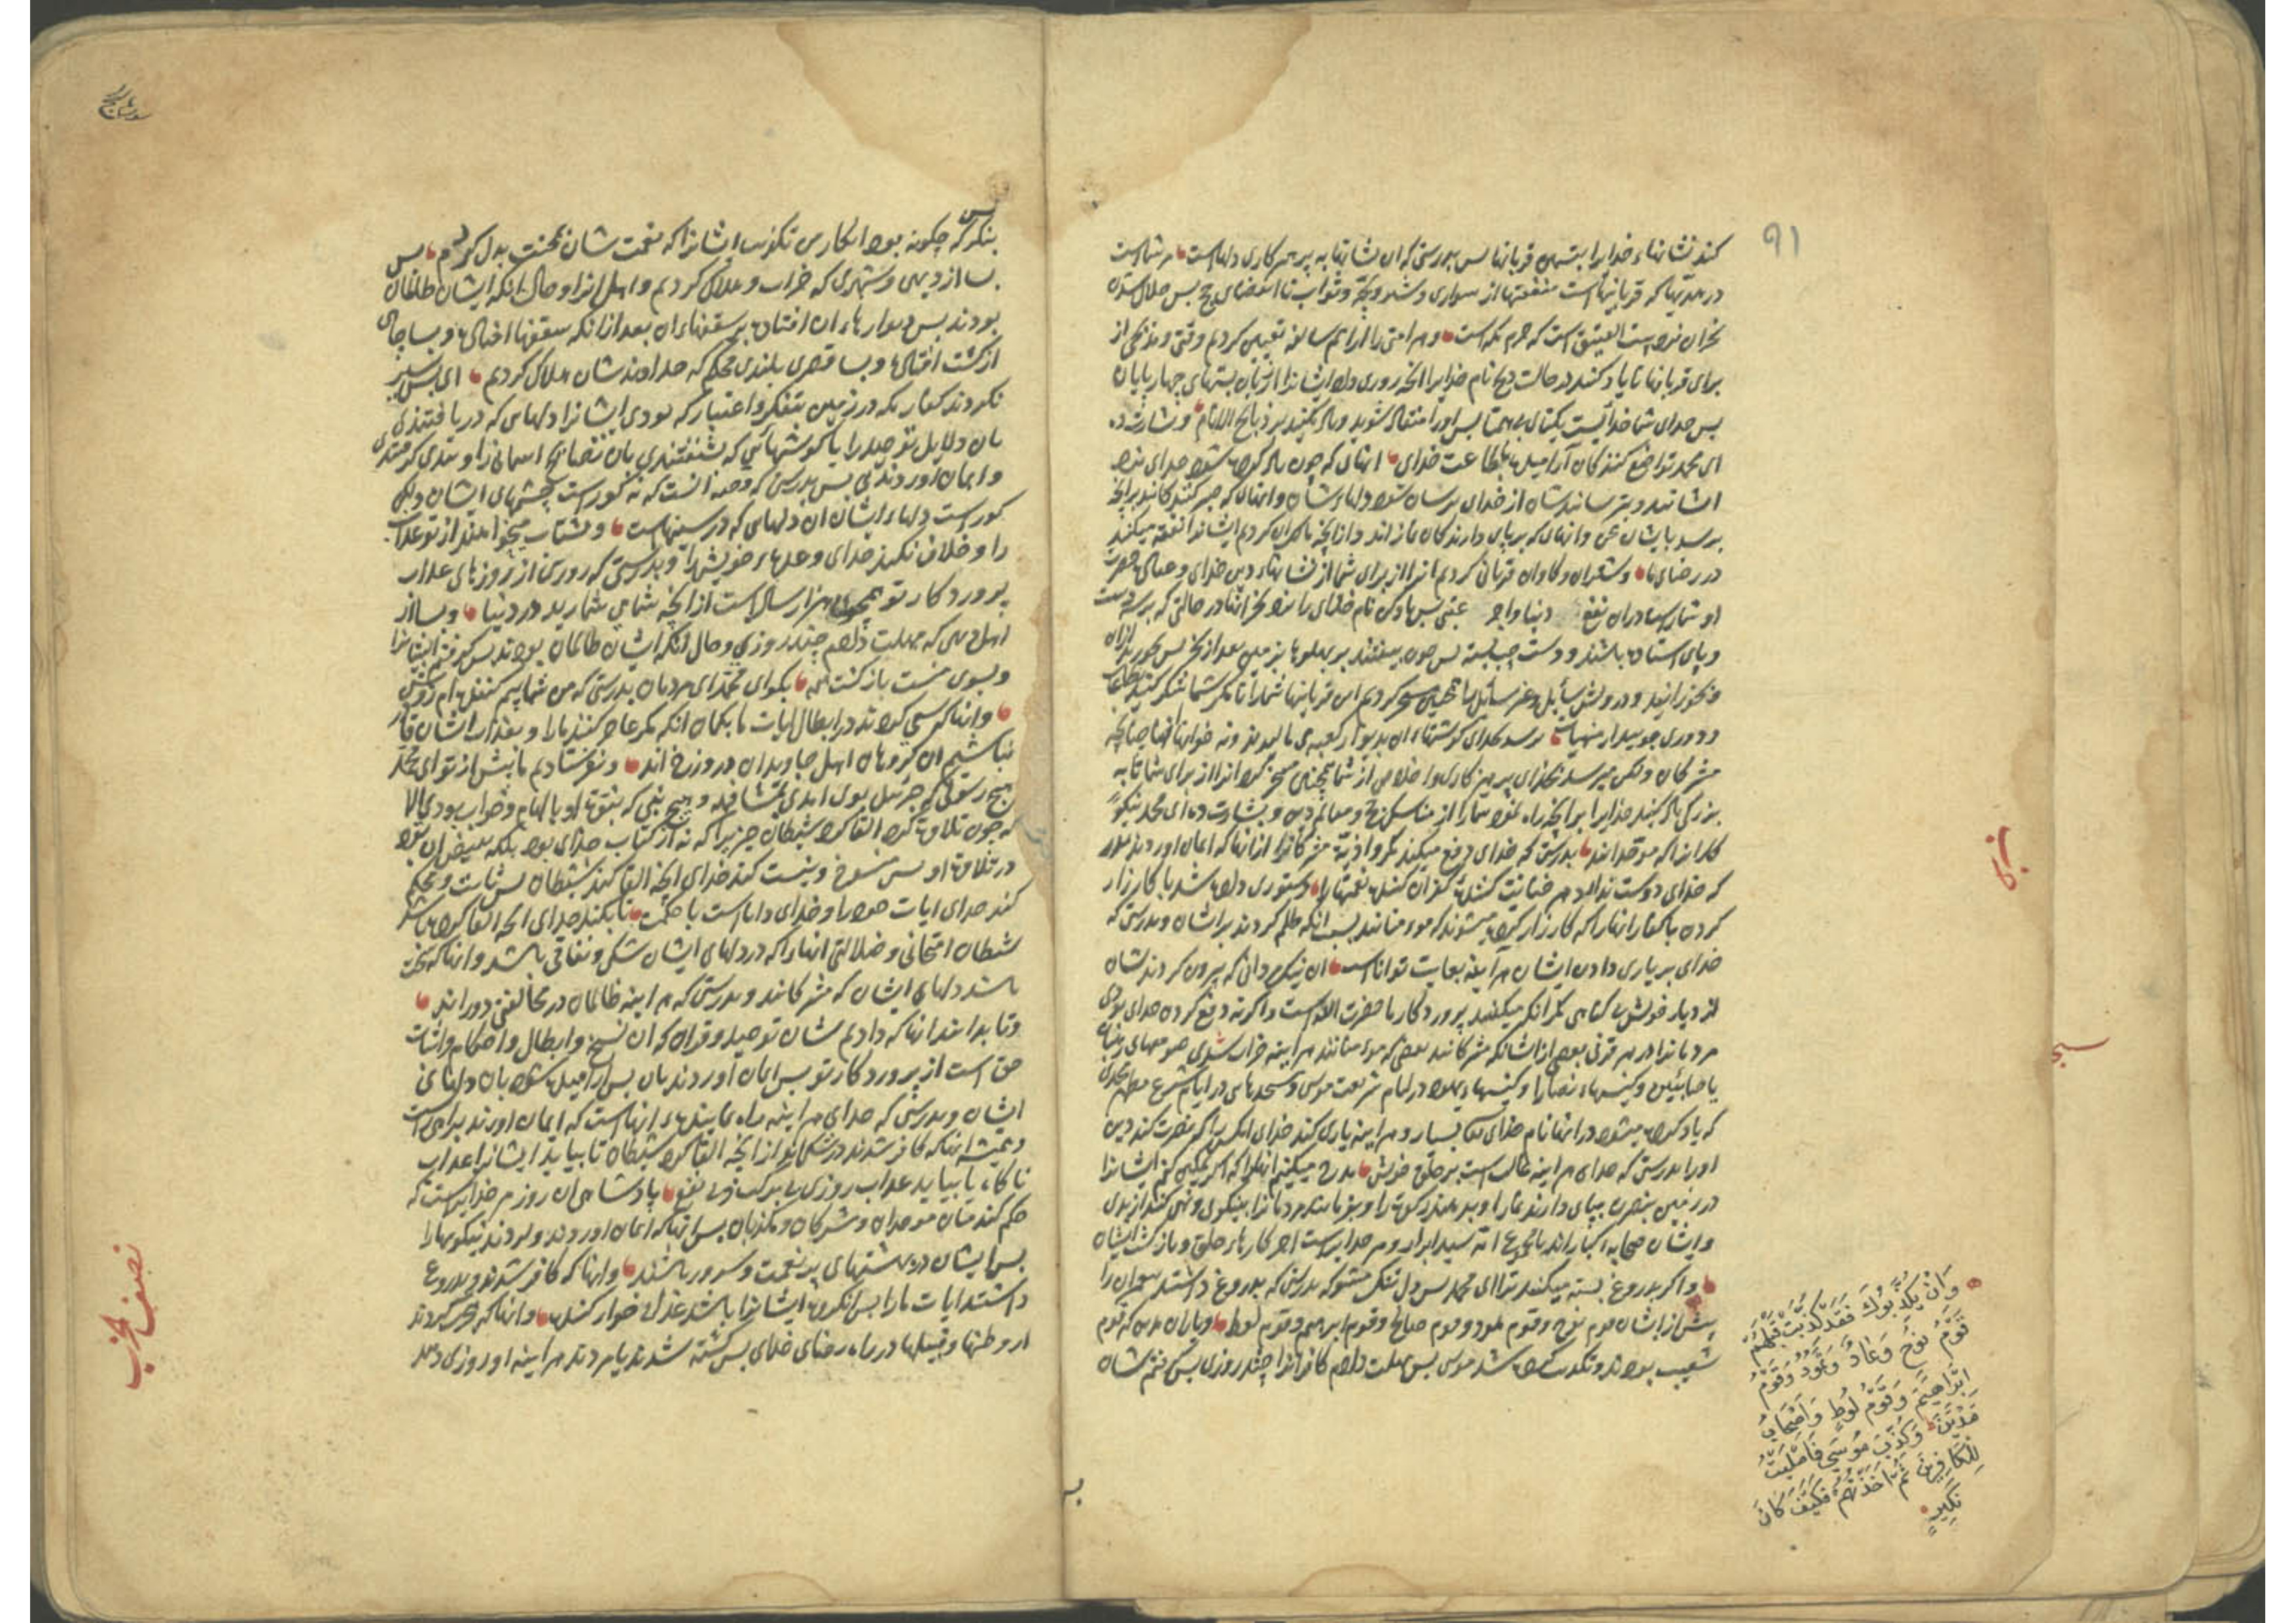 ۹۱
کند نشانهاء خدایرا بتسمین قربانها پس بدرستی که ان نشانها به پرهیزکاری دلهاست مر شماست
در هدیها که قربانیهاست منفعتها از سواری و شیر و بچه و ثواب تا انقضای حج پس حلال شدن
نحران نزد بیت العتیق است که حرم مکه است و هر امتی را از امم سالفه تعیین کردیم وقتی و مذبحی از
برای قربانها تا یاد کنند در حالت ذبح نام خدایرا انچه روزی داده ایشانرا از زبان بستهای چهارپایان
پس خدای شما خدائیست یکتای بی همتا پس اورا منقاد شوید و یاد کنید بر ذبایح الانام و بشارت ده
ای محمد تواضع کنندکان آرامیده بطاعت خدای انهائی که چون یاد کرده شود خدای نزد
ایشانید و ترسانیدشان از خدای ترسان شود دلهاء شان و انهائی که صبر کنندکانند برانچه
برسد بایشان محن و انهائی که برپای دارندکان نمازاند و ازانچه ما کردیم ایشانرا نفقه میکنند
در رضای ما و شتران و کاوان قربانی کردیم انرا از برای شما از نشانهاء دین خدای
او شمارهها دران نفع دنیا و اجر عقبی پس یاد کن نام خدای را نزد نحر انها در حالتی که بر سه دست
و پای استاده باشند و دست چپ بسته پس چون بیفتند بر پهلوها بزمین بعد از نحر پس بخورید ازان
و بخورانید و درویش سائل و غیر سائل را همچنین مسخر کردیم این قربانیها شمارا تا مکر شما شکر کنید
مشرکان ولکن میرسد بخدای پرهیزکاری و اخلاص از شما همچنین مسخر کرد انرا از برای شما تا به
بزرکی یاد کنید خدایرا برانچه راه نمود شمارا از مناسک حج و معالم دین و بشارت ده ای محمد نیکو
کارانرا که موحدانند بدرستی که خدای دفع میکند مکر و اذیت مشرکانرا ازانها که ایمان اوردند
که خدای دوست ندارد هر خیانت کننده کفران کننده نعمتهارا دستوری داده شد با کارزار
کردن با کفار انهارا که کارزار کرده میشوند که مومنانند بسبب انکه ظلم کردند بر ایشان و بدرستی که
خدای بر یاری دادن ایشان هراینه بغایت تواناست ان نیک دانی که بیرون کردندشان
از دیار خویش بی کناهی مکر انکه میکفتند پروردکار ما حضرت الله است و اکر نه دفع کردن خدای بودی
مردمانرا در هر قرنی بعضی از ایشان که مشرکانند ببعضی که مومنانند هراینه خراب شدی صومعهای رهبان
یا صابئین و کنیسهاء نصارا و کنیسهاء یهود در ایام شریعت موسی و مسجدهای در ایام شرع مطهر محمدی
که یاد کرده میشود در انها نام خدای بسیار و هراینه یاری کند خدای انکس را که نصرت کند دین
اورا بدرستی که خدای هراینه غالب است بر خلق خویش مدح میکنیم انهارا که اکر تمکین کنیم ایشانرا
در زمین بنصرت بپای دارند نمازرا و بدهند زکوة را و بفرمایند مردمانرا بنیکوی و نهی کنند از بدی
و ایشان صحابه کبار اند با مجموع امة سید ابرار و مر خدایراست اخر کارهاء خلق و بازکشت ایشان
و اکر بدروغ نسبه میکنند ترا ای محمد پس دل تنک مشو که بدرستی که بدروغ داشتند پیغمبران را
پیش از ایشان قوم نوح و قوم هود و قوم صالح و قوم ابرهیم و قوم لوط و یاران مدین که قوم
شعیب بودند و تکذیب کرده شد موسی پس مهلت دادم کافرانرا چند روزی پس کرفتم شان
وَاِنْ يُكَذِّبُوكَ فَقَدْ كَذَّبَتْ قَبْلَهُمْ
قَوْمُ نُوحٍ وَعَادٌ وَثَمُودُ وَقَوْمُ
اِبْرَاهِيمَ وَقَوْمُ لُوطٍ وَاَصْحَابُ
مَدْيَنَ وَكُذِّبَ مُوسَى فَاَمْلَيْتُ
لِلْكَافِرِينَ ثُمَّ اَخَذْتُهُمْ فَكَيْفَ كَانَ
نَكِيرِ
سورة الحج
بنکر که چکونه بود انکار من تکذیب ایشانرا که نعمت شان بمحنت بدل کردم پس
بسا از دیهی و شهری که خراب و هلاک کردیم و اهل انرا و حال انکه ایشان ظالمان
بودند پس دیوارهاء ان افتاده بر سقفهاء ان بعد ازانکه سقفها افتاده و بسا چاه
از کشت افتاده و بسا قصری بلندی محکم که خداوندشان هلاک کردیم ای پس سیر
نکردند کفار مکه در زمین بتفکر و اعتبار که بودی ایشانرا دلهای که دریافتندی
بان دلایل توحید را یا کوشهائی که شنفتندی بان نصایح اسمانی را
و ایمان اوردندی پس بدرستی که قصه انست که نه کوراست چشمهای ایشان ولکن
کوراست دلهاء ایشان ان دلهای که در سینهاست و بشتاب میخواهند از تو عذاب
را و خلاف نکند خدای وعدهاء خویش را و بدرستی که روزی از روزهای عذاب
پروردکار تو همچون هزار سال است ازانچه شما می شمارید در دنیا و بسا از
اهل دهی که مهلت دادم چند روزی و حال انکه ایشان ظالمان بودند پس کرفتم ایشانرا
و بسوی منست بازکشت همه بکو ای محمد ای مردمان بدرستی که من شمارا بیم کننده ام روشن
و انها که سعی کردند در ابطال ایات ما بکمان انکه مکر عاجز کنند مارا و بعذاب ایشان قادر
نباشیم ان کروهان اهل جاویدان دوزخ اند و نفرستادیم ما پیش از تو ای محمد
هیچ رسولی که جبرئیل بوی امدی بمشافهه و هیچ نبی که بنبوة او بالهام و خواب بودی الا
که چون تلاوة کرد القا کرد شیطان چیزیرا که نه از کتاب خدای بود
در تلاوة او پس منسوخ و نیست کند خدای انچه القا کند شیطان پس ثابت و محکم
کند خدای ایات خودرا و خدای داناست با حکمت تا بکند خدای انچه القا کرده باشد
شیطان امتحانی و ضلالتی انهارا که در دلهای ایشان شکی و نفاقی باشد و انها که سخت
باشد دلهای ایشان که مشرکانند و بدرستی که هراینه ظالمان در مخالفتی دور اند
و تا بدانند انها که دادیم شان توحید و قران که ان نسخ و ابطال و احکام و اثبات
حق است از پروردکار تو پس ایمان اوردند بان پس ارامیده شود بان دلهای
ایشان و بدرستی که خدای هراینه راه نماینده انهاست که ایمان اورند براه راست
و همیشه انها که کافر شدند در شکی اند ازانچه القا کرد شیطان تا بیاید ایشانرا عذاب
ناکاه یا بیاید عذاب روزی بی برکت و بی نفع پادشاهی ان روز مر خدایراست که
حکم کند میان موحدان و مشرکان و مکذبان پس انها که ایمان اوردند و کردند نیکوییهارا
پس ایشان در بهشتهای پر نعمت و سرور باشند و انها که کافر شدند و بدروغ
داشتند ایات مارا پس انکروه ایشانرا باشد عذاب خوار کننده و انها که هجرت کردند
از وطنها و قبیلها در راه رضای خدای پس کشته شدند یا مردند هراینه او روزی دهد
نصف الحزب